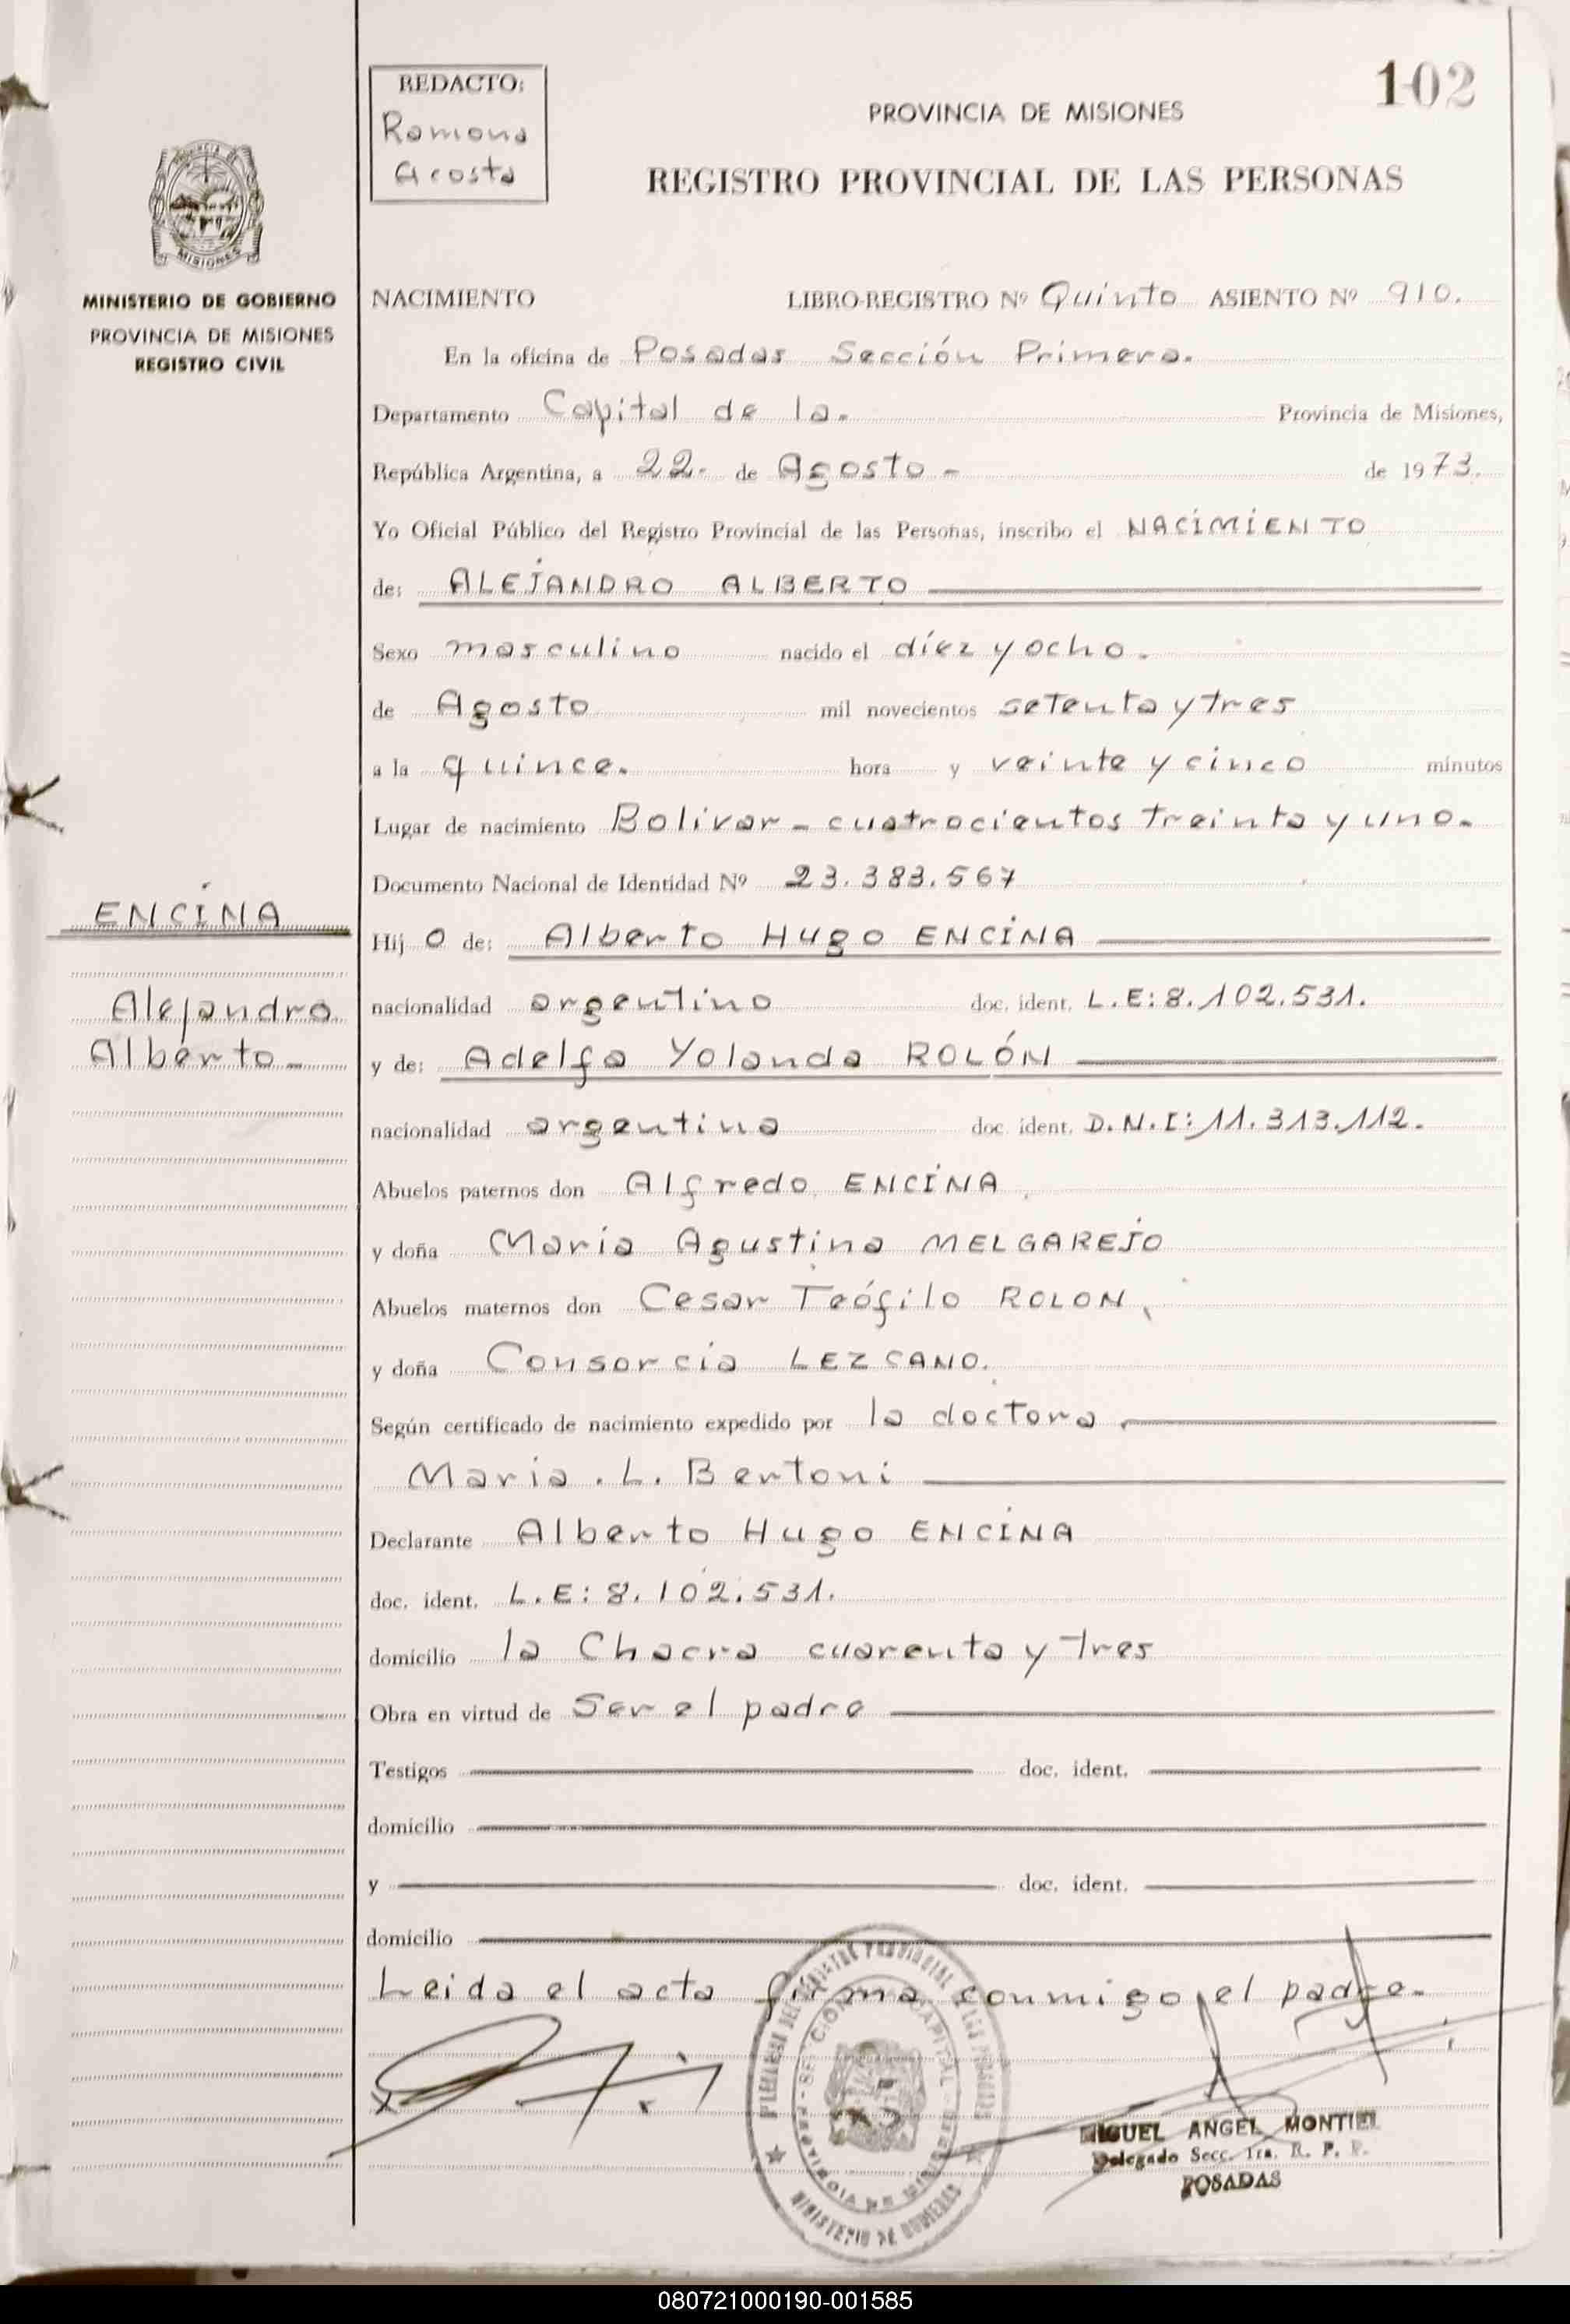 102
REDACTO:
Ramona
Acosta
PROVINCIA DE MISIONES
REGISTRO PROVINCIAL DE LAS PERSONAS
MISIONES
MINISTERIO DE GOBIERNO
PROVINCIA DE MISIONES
REGISTRO CIVIL
ENCINA
Alejandro
Alberto-
NACIMIENTO LIBRO-REGISTRO Nº Quinto ASIENTO Nº 910.
En la oficina de Posadas Sección Primera.
Departamento Capital de la. Provincia de Misiones,
República Argentina, a 22. de Agosto - de 1973.
Yo Oficial Público del Registro Provincial de las Personas, inscribo el NACIMIENTO
de: ALEJANDRO ALBERTO
Sexo masculino nacido el díez y ocho.
de Agosto mil novecientos setenta y tres
a la quince. hora y veinte y cinco minutos
Lugar de nacimiento Bolivar - cuatrocientos treinta y uno.
Documento Nacional de Identidad Nº 23.383.567
Hij o de: Alberto Hugo ENCINA
nacionalidad argentino doc. ident. L.E: 8.102.531.
y de: Adelfa Yolanda ROLÓN
nacionalidad argentina doc. ident. D.N.I: 11.313.112.
Abuelos paternos don Alfredo ENCINA,
y doña Maria Agustina MELGAREJO
Abuelos maternos don Cesar Teófilo ROLON,
y doña Consorcia LEZCANO.
Según certificado de nacimiento expedido por la doctora,
Maria . L. Bertoni
Declarante Alberto Hugo ENCINA
doc. ident. L.E: 8.102.531.
domicilio la Chacra cuarenta y tres
Obra en virtud de Ser el padre
Testigos doc. ident.
domicilio
y doc. ident.
domicilio
Leida el acta firma conmigo el padre.
MIGUEL ANGEL MONTIEL
Delegado Secc. 1ra. R. P. P.
POSADAS
MINISTERIO DE GOBIERNO
080721000190-001585